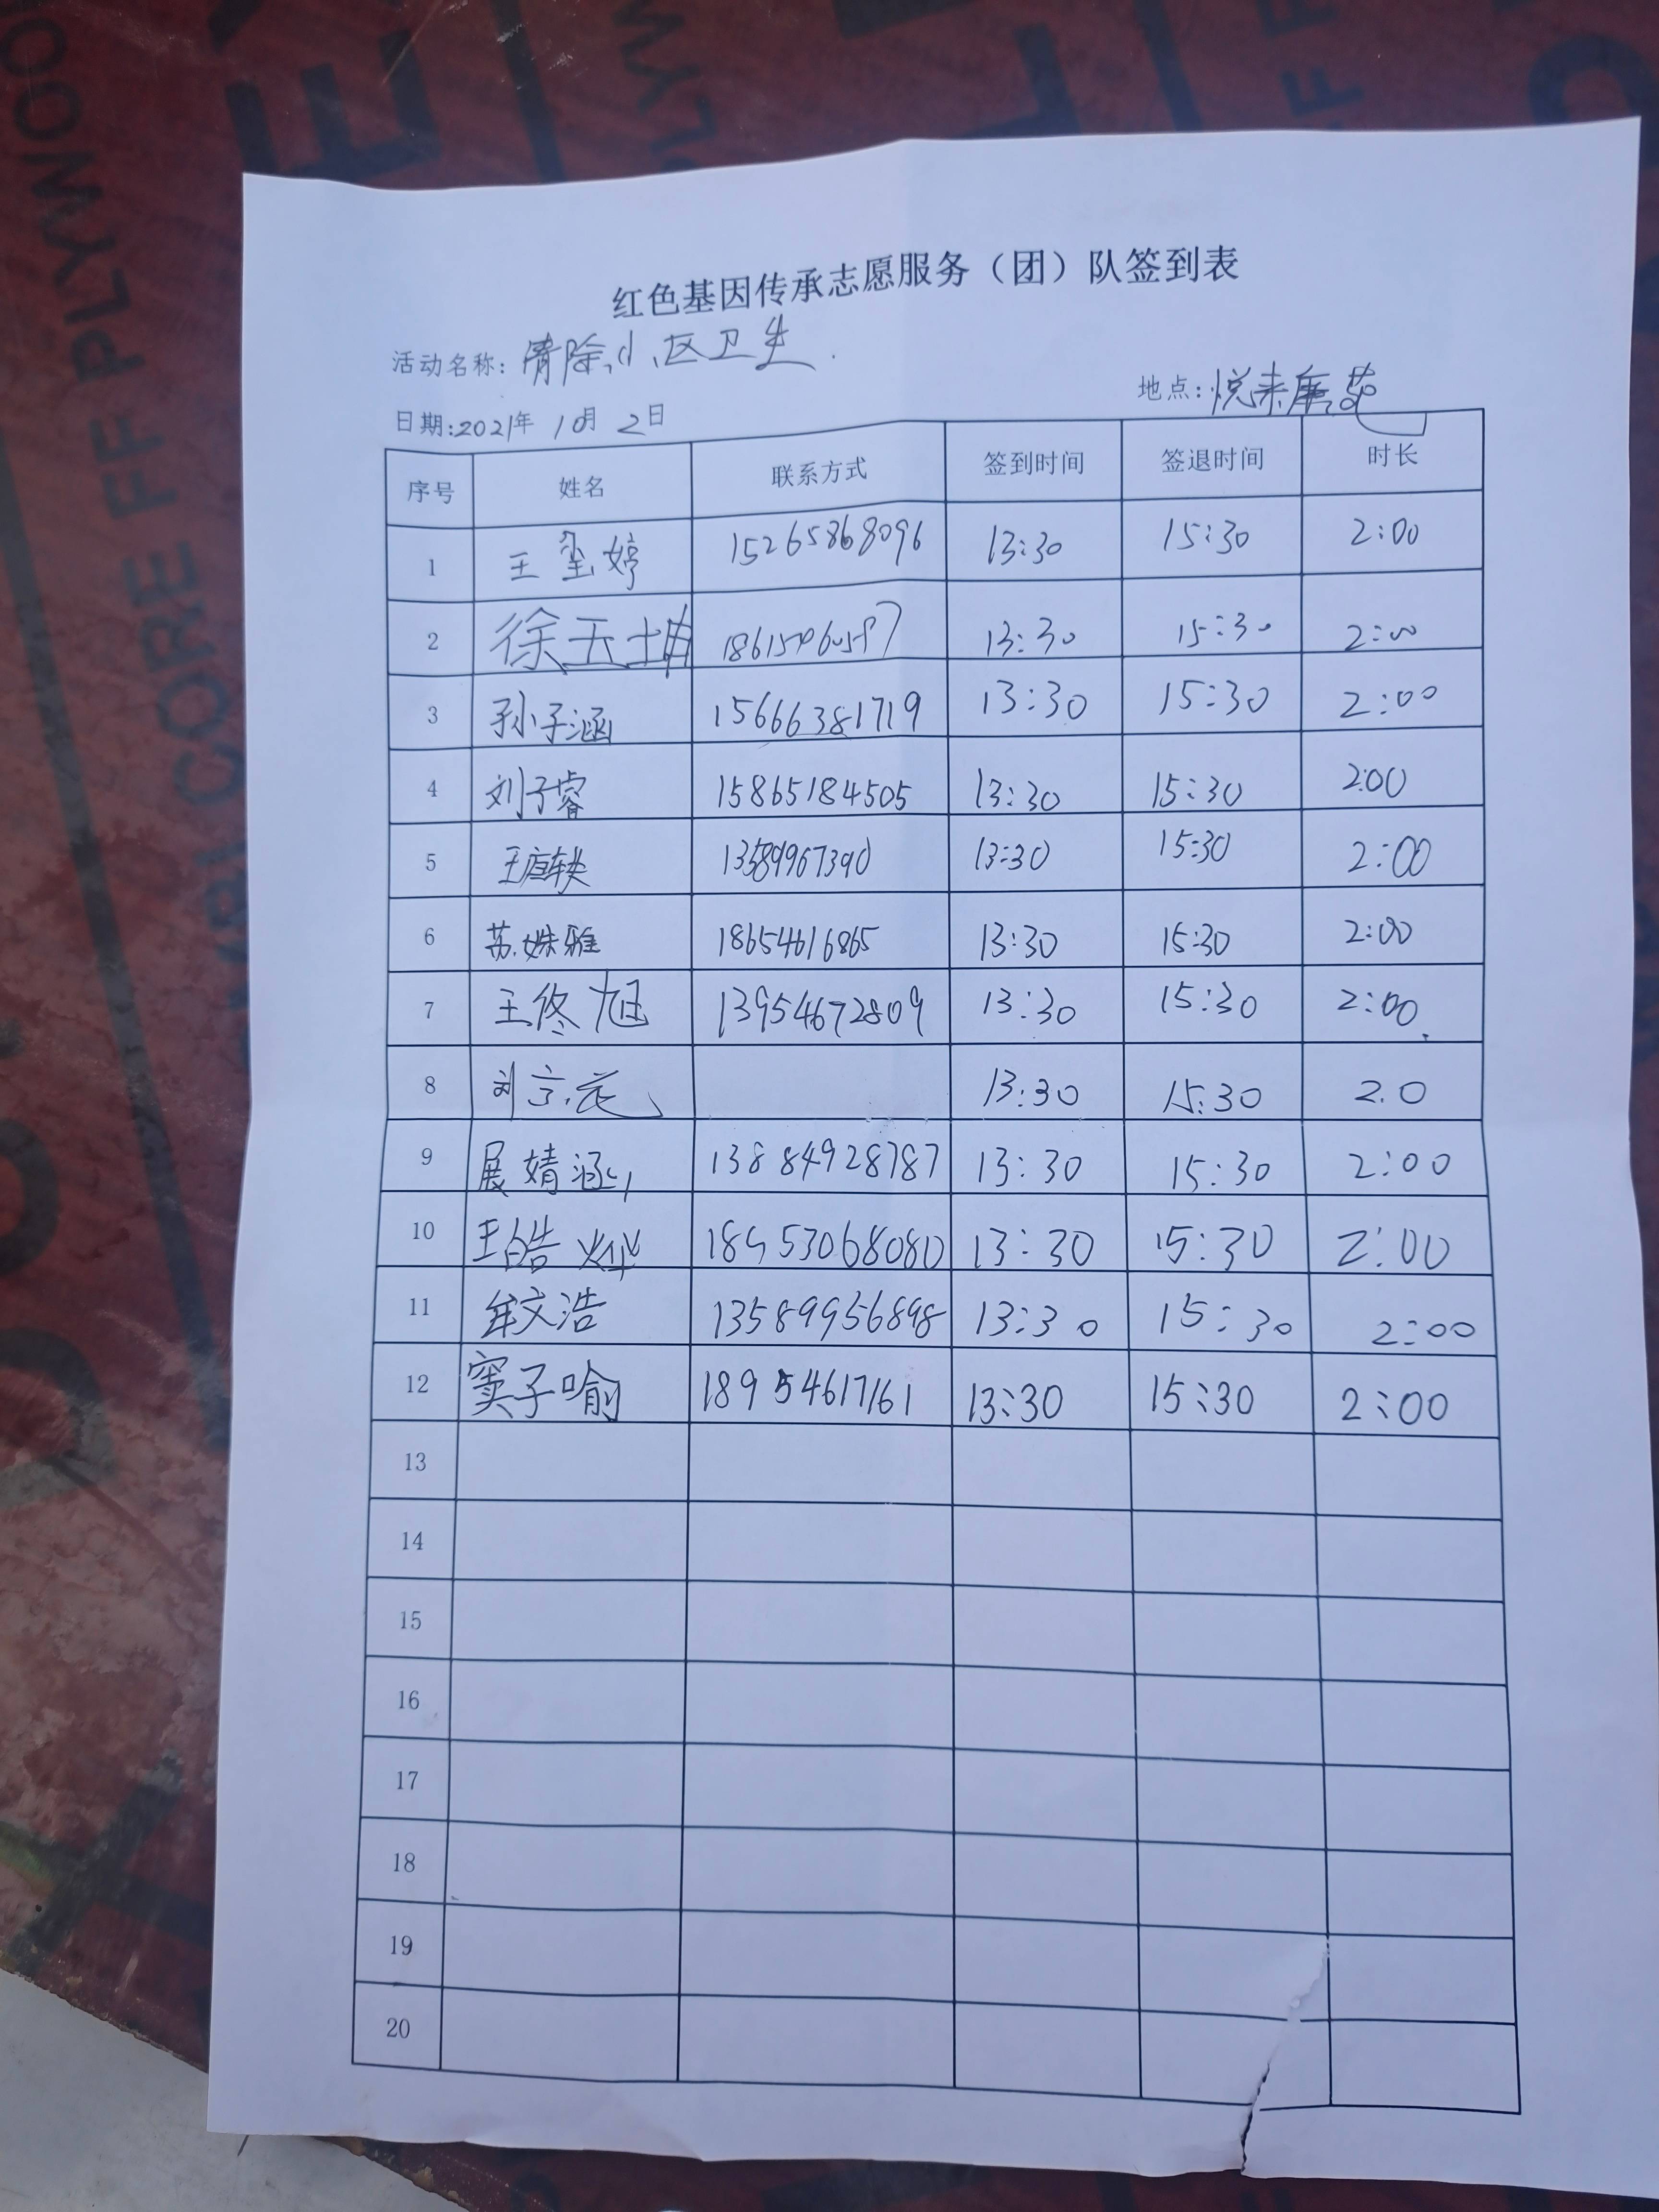 红色基因传承志愿服务（团）队签到表
活动名称：清除小区卫生.
地点：悦来
日期:2021年 10月 2日
序号 姓名 联系方式 签到时间 签退时间 时长
1 王玺婷 15265868096 13:30 15:30 2:00
2 徐玉 13:30 15:30 2:00
3 孙子涵 15666381719 13:30 15:30 2:00
4 刘子睿 15865184505 13:30 15:30 2:00
5 13589967390 13:30 15:30 2:00
6 苏姝雅 18654616865 13:30 15:30 2:00
7 王佟旭 13954672809 13:30 15:30 2:00
8 刘 13:30 15:30 2.0
9 展婧涵 13884928787 13:30 15:30 2:00
10 王皓烨 13:30 15:30 2:00
11 牟文浩 13589956898 13:30 15:30 2:00
12 窦子喻 18954617161 13:30 15:30 2:00
13
14
15
16
17
18
19
20
CORE FF PLYWOO